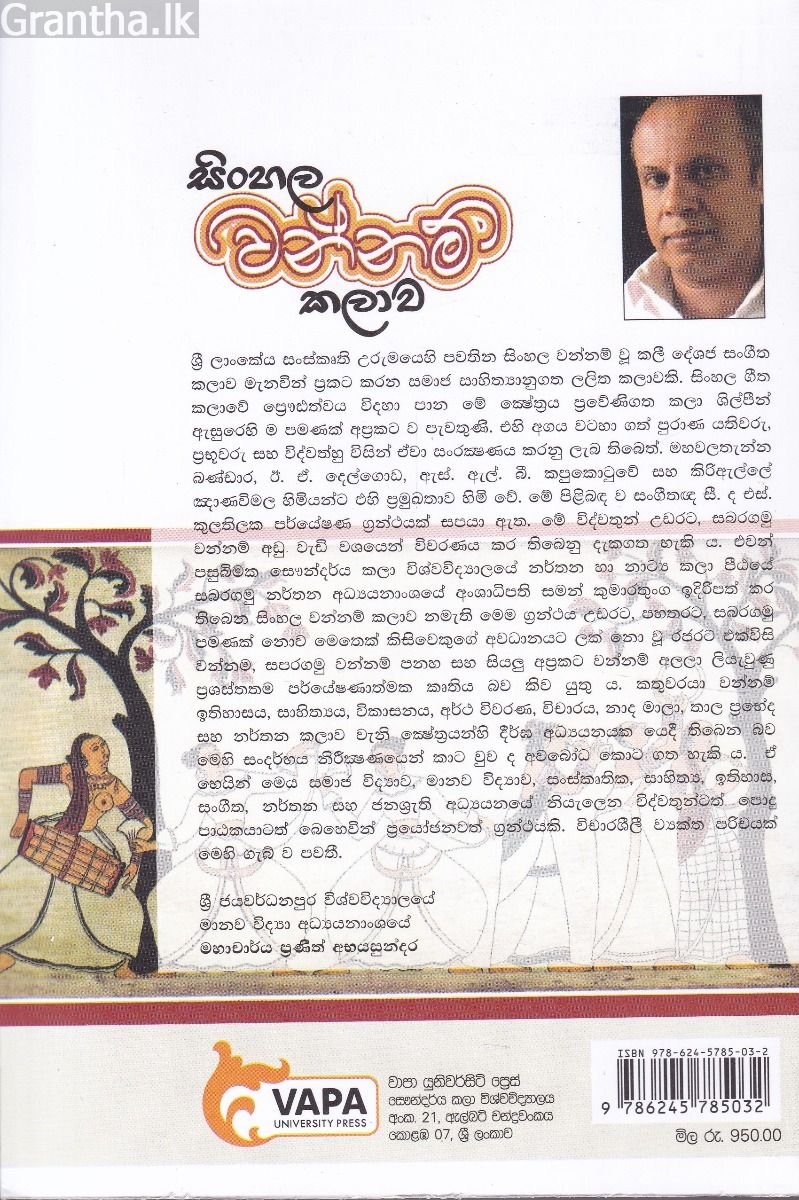 Grantha.lk
සිංහල
වන්නම්
කලාව
ශ්‍රී ලාංකේය සංස්කෘති උරුමයෙහි පවතින සිංහල වන්නම් වූ කලී දේශජ සංගීත
කලාව මැනවින් ප්‍රකට කරන සමාජ සාහිත්‍යානුගත ලලිත කලාවකි. සිංහල ගීත
කලාවේ ප්‍රෞඪත්වය විදහා පාන මේ ක්‍ෂේත්‍රය ප්‍රවේණිගත කලා ශිල්පීන්
ඇසුරෙහි ම පමණක් අප්‍රකට ව පැවතුණි. එහි අගය වටහා ගත් පුරාණ යතිවරු,
ප්‍රභූවරු සහ විද්වත්හු විසින් ඒවා සංරක්‍ෂණය කරනු ලැබ තිබෙත්. මහවලතැන්න
බණ්ඩාර, ඊ. ඒ. දෙල්ගොඩ, ඇස්. ඇල්. බී. කපුකොටුවේ සහ කිරිඇල්ලේ
ඤාණවිමල හිමියන්ට එහි ප්‍රමුඛතාව හිමි වේ. මේ පිළිබඳ ව සංගීතඥ සී. ද එස්.
කුලතිලක පර්යේෂණ ග්‍රන්ථයක් සපයා ඇත. මේ විද්වතුන් උඩරට, සබරගමු
වන්නම් අඩු වැඩි වශයෙන් විවරණය කර තිබෙනු දැකගත හැකි ය. එවන්
පසුබිමක සෞන්දර්ය කලා විශ්වවිද්‍යාලයේ නර්තන හා නාට්‍ය කලා පීඨයේ
සබරගමු නර්තන අධ්‍යයනාංශයේ අංශාධිපති සමන් කුමාරතුංග ඉදිරිපත් කර
තිබෙන සිංහල වන්නම් කලාව නමැති මෙම ග්‍රන්ථය උඩරට, පහතරට, සබරගමු
පමණක් නොව මෙතෙක් කිසිවෙකුගේ අවධානයට ලක් නො වූ රජරට එක්විසි
වන්නම, සපරගමු වන්නම් පනහ සහ සියලු අප්‍රකට වන්නම් අලලා ලියැවුණු
ප්‍රශස්තතම පර්යේෂණාත්මක කෘතිය බව කිව යුතු ය. කතුවරයා වන්නම්
ඉතිහාසය, සාහිත්‍යය, විකාසනය, අර්ථ විවරණ, විචාරය, නාද මාලා, තාල ප්‍රභේද
සහ නර්තන කලාව වැනි ක්‍ෂේත්‍රයන්හි දීර්ඝ අධ්‍යයනයක යෙදී තිබෙන බව
මෙහි සංදර්භය නිරීක්‍ෂණයෙන් කාට වුව ද අවබෝධ කොට ගත හැකි ය. ඒ
හෙයින් මෙය සමාජ විද්‍යාව, මානව විද්‍යාව, සංස්කෘතික, සාහිත්‍ය, ඉතිහාස,
සංගීත, නර්තන සහ ජනශ්‍රැති අධ්‍යයනයේ නියැලෙන විද්වතුන්ටත් පොදු
පාඨකයාටත් බෙහෙවින් ප්‍රයෝජනවත් ග්‍රන්ථයකි. විචාරශීලී ව්‍යක්ත පරිචයක්
මෙහි ගැබ් ව පවතී.
ශ්‍රී ජයවර්ධනපුර විශ්වවිද්‍යාලයේ
මානව විද්‍යා අධ්‍යයනාංශයේ
මහාචාර්ය ප්‍රණීත් අභයසුන්දර
VAPA
UNIVERSITY PRESS
වාපා යුනිවර්සිටි ප්‍රෙස්
සෞන්දර්ය කලා විශ්වවිද්‍යාලය
අංක. 21, ඇල්බට් චන්ද්‍රවංකය
කොළඹ 07, ශ්‍රී ලංකාව
ISBN 978-624-5785-03-2
9 786245 785032
මිල රු. 950.00